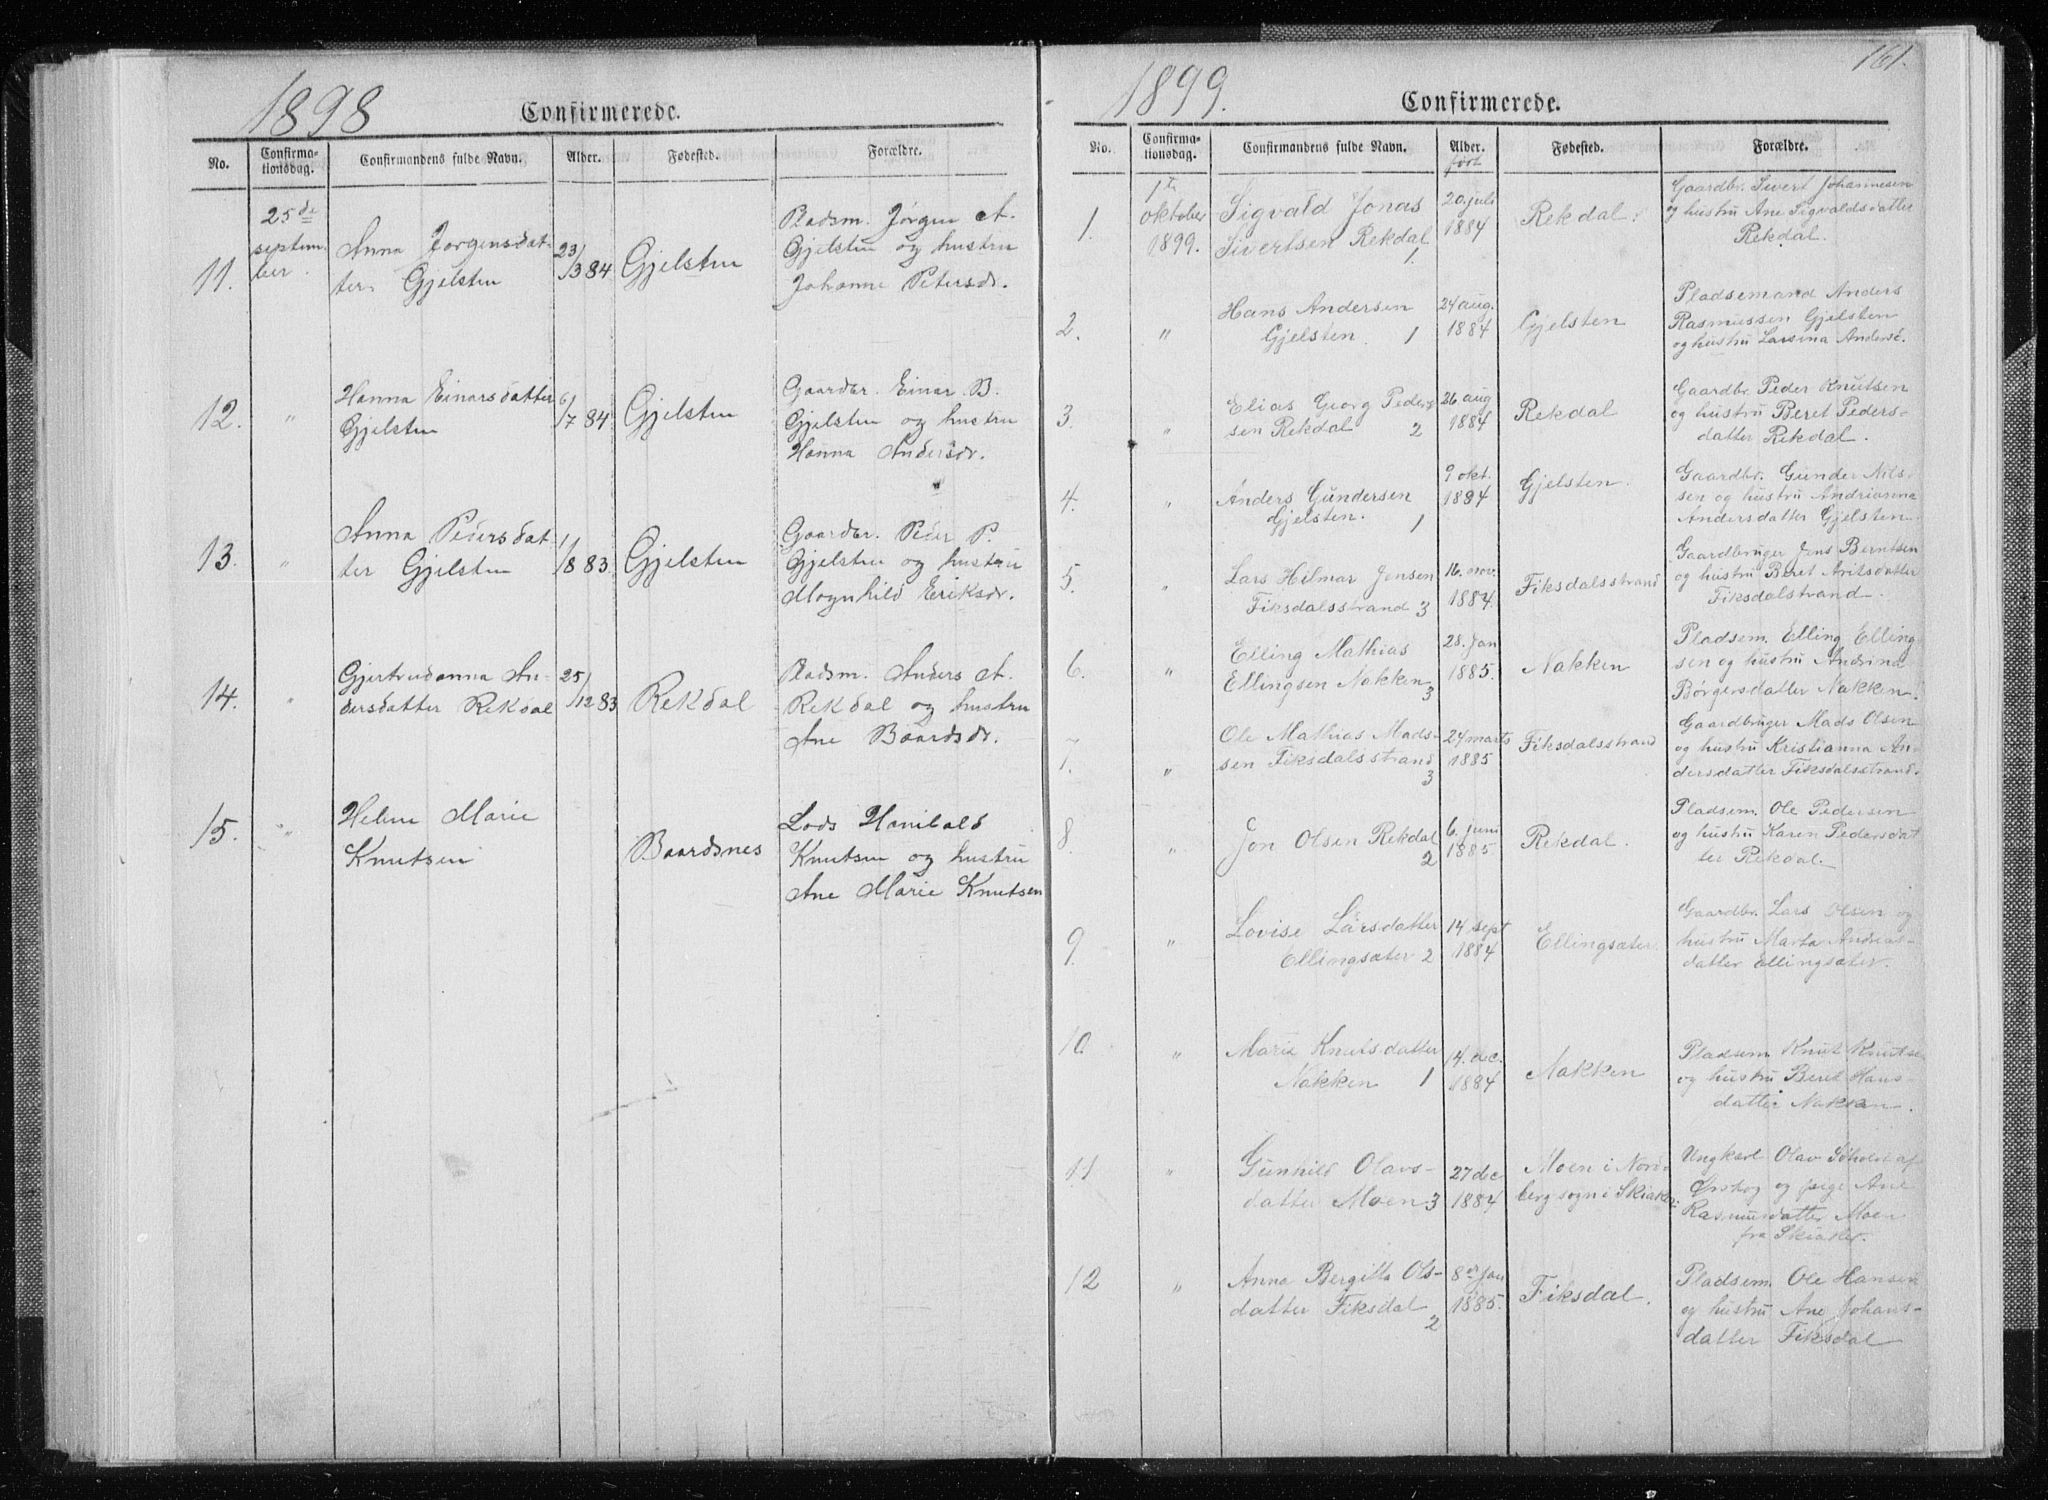 1898
Confirmerede.
No.
Confirma-
tionsdag.
Confirmandens fulde Navn.
Alder.
Fødested.
Forældre.
11.
25de
septem-
ber.
Anna Jørgensdat-
ter Gjelsten
23/3 84
Gjelsten
Pladsm. Jørgen A.
Gjelsten og hustru
Johanne Petersdr.
12.
"
Hanna Einarsdatter
Gjelsten
6/7 84
Gjelsten
Gaardbr. Einar B.
Gjelsten og hustru
Hanna Andersdr.
13.
"
Anna Pedersdat-
ter Gjelsten
1/8 83.
Gjelsten
Gaardbr. Peder P.
Gjelsten og hustru
Magnhild Eriksdr.
14.
"
Gjertrudanna An-
dersdatter Rekdal
25/12 83
Rekdal
Pladsm. Anders A.
Rekdal og hustru
Ane Baardsdr.
15.
"
Helene Marie
Knutsen
Baardsnes
Lods Hanibald
Knutsen og hustru
Ane Marie Knutsen
161.
1899.
Confirmerede.
No.
Confirma-
tionsdag.
Confirmandens fulde Navn.
Alder.
født
Fødested.
Forældre.
1.
1te
oktober
1899.
Sigvald Jonas
Sivertsen Rekdal
1.
20. juli
1884
Rekdal.
Gaardbr. Sivert Johannesen
og hustru Ane Sigvaldsdatter
Rekdal.
2.
"
Hans Andersen
Gjelsten. 1
24 aug.
1884
Gjelsten
Pladsemand Anders
Rasmussen Gjelsten
og hustru Larsina Andersd.
3.
"
Elias Georg Peder-
sen Rekdal 2
26 aug
1884
Rekdal
Gaardbr. Peder Knutsen
og hustru Beret Peders-
datter Rekdal.
4.
"
Anders Gundersen
Gjelsten. 1
9 okt.
1884
Gjelsten.
Gaardbr. Gunder Nils-
sen og hustru Andrianna
Andersdatter Gjelsten.
5.
"
Lars Hilmar Jensen
Fiksdalsstrand 3
16. nov.
1884.
Fiksdalsstrand
Gaardbruger Jens Berntsen
og hustru Beret
Fiksdalstrand.
6.
"
Elling Mathias
Ellingsen Nakken
3
28. Jan
1885.
Nakken
Pladsem. Elling Elling-
sen og hustru Andrina
Børgersdatter Nakken.
7.
"
Ole Mathias Mads-
sen Fiksdalsstrand
3
24 marts
1885
Fiksdalsstrand
Gaardbruger Mads Olsen
og hustru Kristianna An-
dersdatter Fiksdalsstrand.
8.
"
Jon Olsen Rekdal
2
6. juni
1885.
Rekdal.
Pladsem. Ole Pedersen
og hustru Karen Pedersdat
ter Rekdal.
9.
"
Lovise Larsdatter
Ellingsæter 2
14 sept
1884
Ellingsæter.
Gaardbr. Lars Olsen og
hustru Marta Andreas-
datter Ellingsæter.
10.
"
Marie Knutsdatter
Nakken 1
14. dec.
1884
Nakken
Pladsem. Knut Knutse
og hustru Beret Hans-
datter Nakken.
11
"
Gunhild Olavs-
datter Moen 3
27 dec
1884
Moen i Nord-
berg sogn i Skiaker.
Ungkarl Olav Søholt af
Ørskog og pige Ane
Rasmusdatter Moen
fra Skiaker.
12
"
Anna Bergitta Ols-
datter Fiksdal
2
8de Jan
1885.
Fiksdal.
Pladsem. Ole Hansen
og hustru Ane Johans-
datter Fiksdal